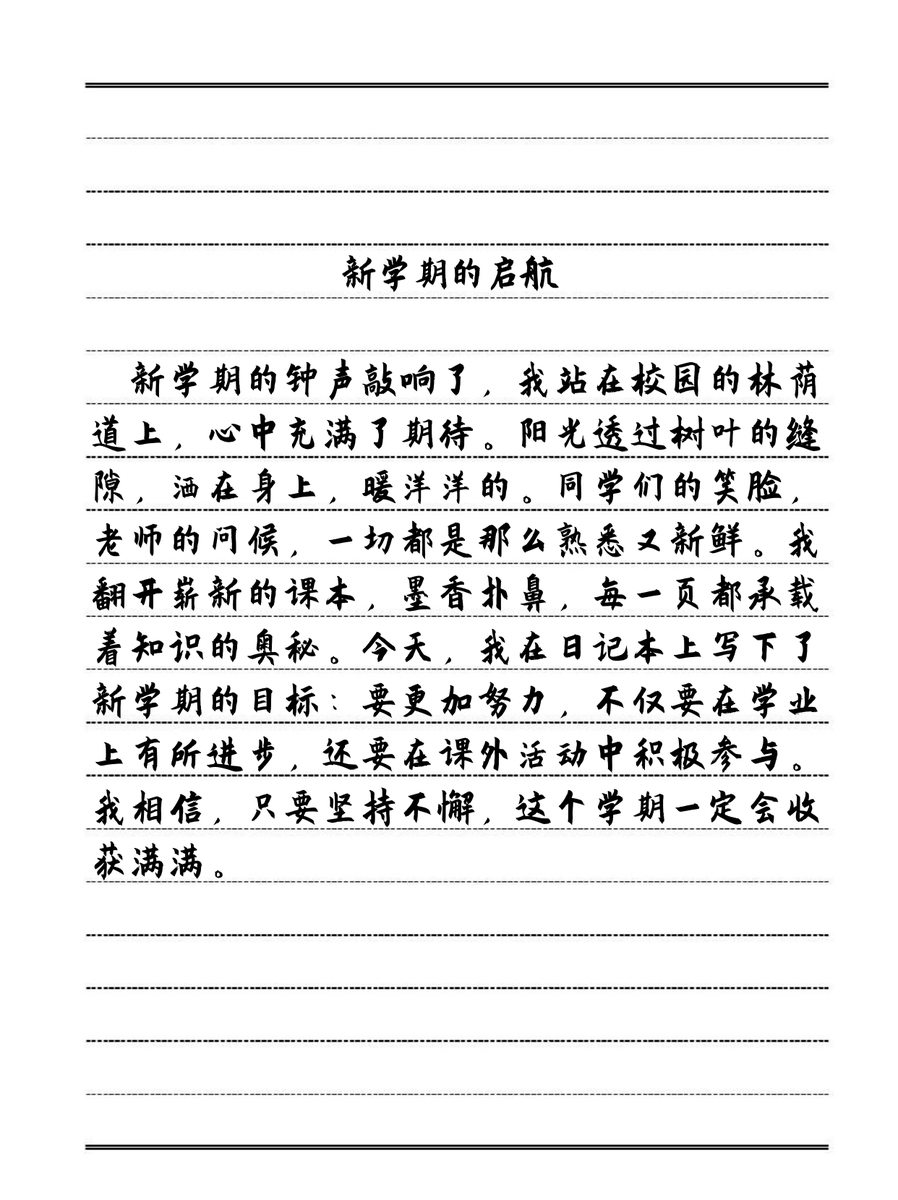 新学期的启航
新学期的钟声敲响了，我站在校园的林荫
道上，心中充满了期待。阳光透过树叶的缝
隙，洒在身上，暖洋洋的。同学们的笑脸，
老师的问候，一切都是那么熟悉又新鲜。我
翻开崭新的课本，墨香扑鼻，每一页都承载
着知识的奥秘。今天，我在日记本上写下了
新学期的目标：要更加努力，不仅要在学业
上有所进步，还要在课外活动中积极参与。
我相信，只要坚持不懈，这个学期一定会收
获满满。